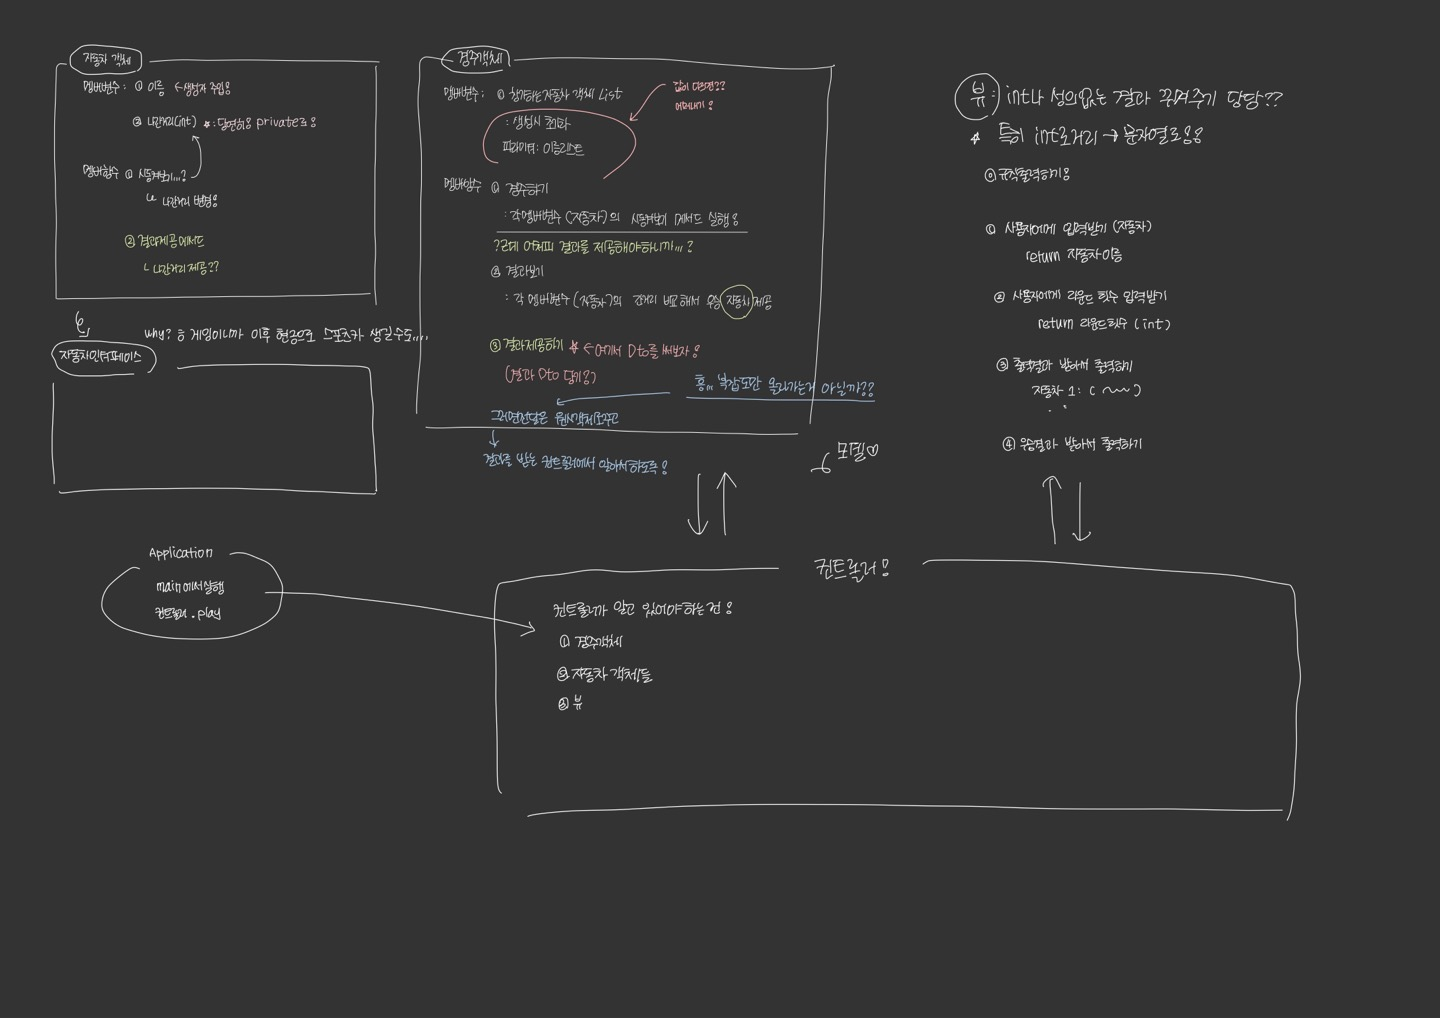 자동차 객체
멤버변수 : ① 이름 ← 생성자 주입!
② 나간거리(int) * : 당연하응 private로!
멤버함수 ① 시동켜보기...?
↳ 나간거리 변경!
② 결과제공메서드
└ 나간거리 제공??
why? 음 게임이니까 이후 현금으로 스포츠카 생길수도....
자동차인터페이스
경주객체
멤버변수 : ① 참가하는자동차 객체 List
: 생성시 초기화
파라미터 : 이름리스트
값이 다르면??
에러내기!
멤버함수 ① 경주하기
: 각 멤버변수 (자동차)의 시동켜보기 메서드 실행!
? 근데 어차피 결과를 제공해야하니까... ?
② 결과보기
: 각 멤버변수 (자동차)의 간거리 비교해서 우승 자동차 제공
③ 결과제공하기 * ← 여기서 Dto를 써보자!
(결과 Dto 담기?)
흠... 복잡도만 올라가는거 아닐까??
그러면전달은 원시객체로꾸고
결과를 받는 컨트롤러에서 알아서하도록!
모델♡
뷰 : int나 성의없는 결과 꾸며주기 담당??
* 특히 int로거리 → 문자열로!!
⓪ 규칙출력하기!
① 사용자에게 입력받기 (자동차)
return 자동차이름
② 사용자에게 라운드 횟수 입력받기
return 라운드횟수 (int)
③ 출력결과 받아서 출력하기
자동차 1 : ( ~~~ )
④ 우승결과 받아서 출력하기
Application
main에서실행
컨트롤러 . play
컨트롤러!
컨트롤러가 알고 있어야하는건!
① 경주객체
② 자동차 객체들
③ 뷰